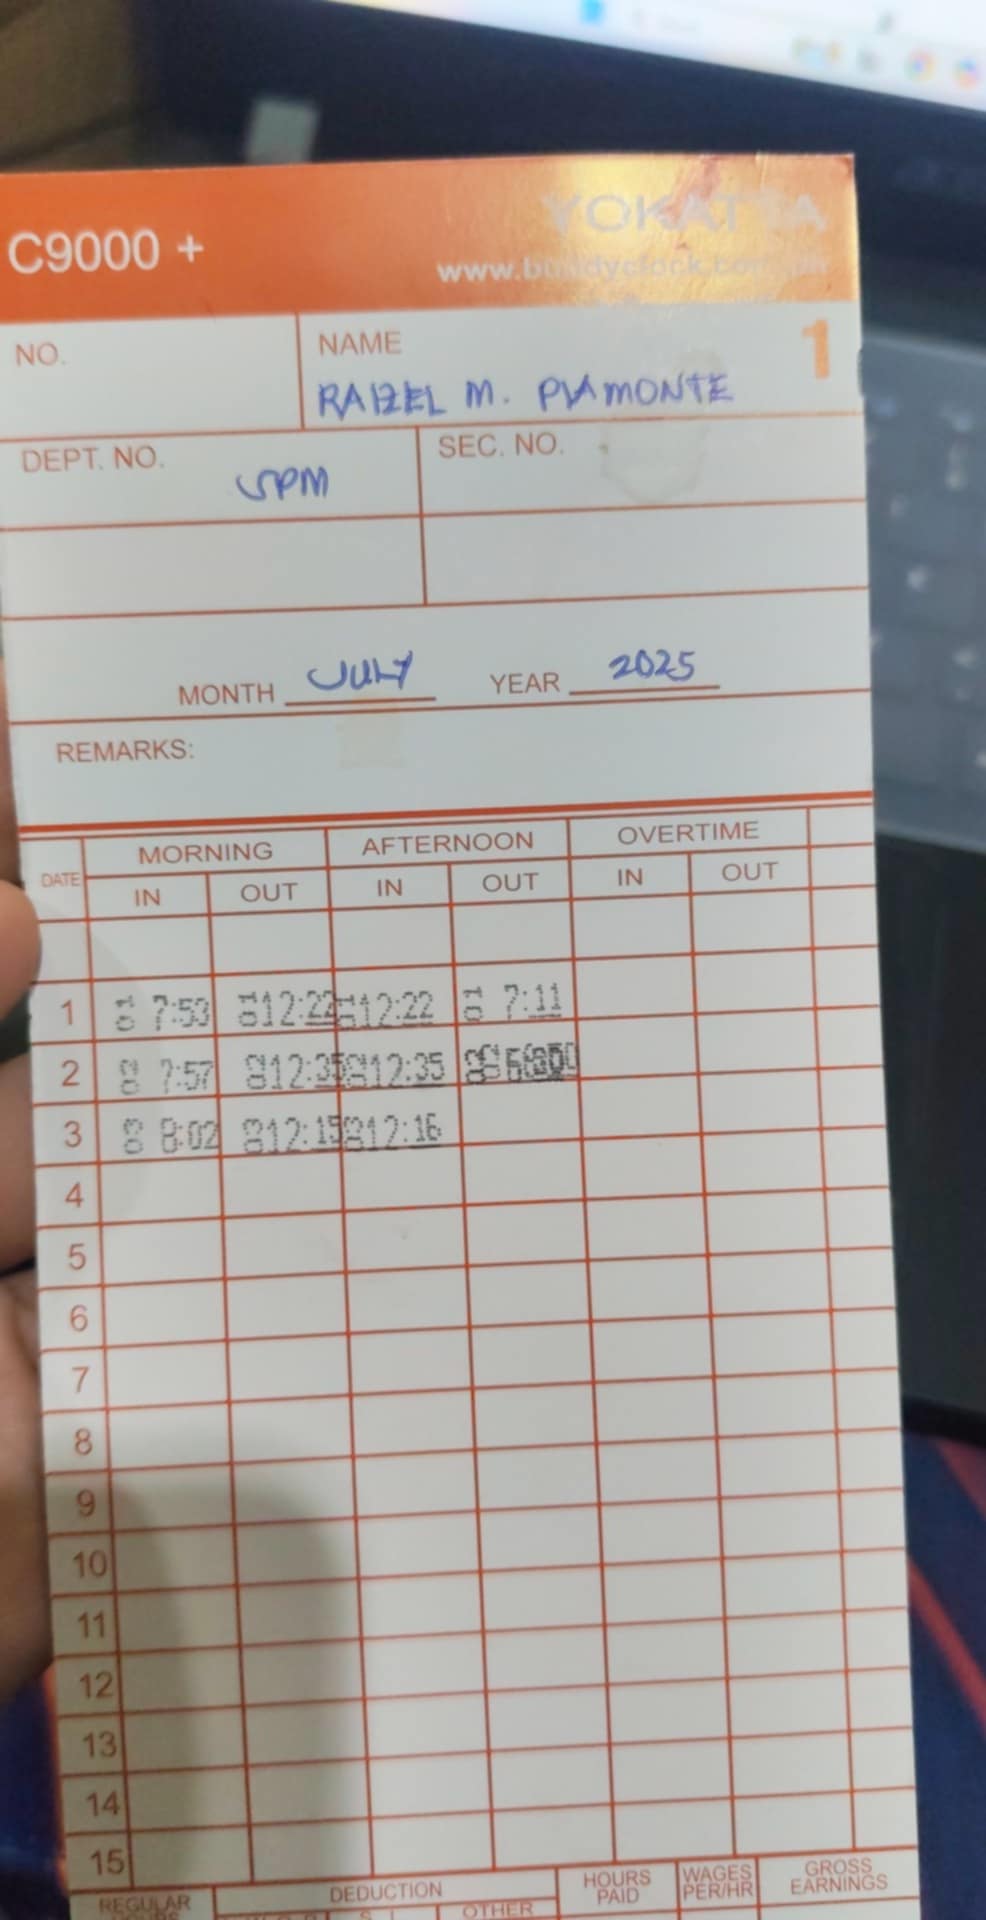 C9000 +
YOKATTA
www.bundyclock.com.ph
NO.
NAME
1
RAIZEL M. PIAMONTE
DEPT. NO.
SPM
SEC. NO.
MONTH JULY YEAR 2025
REMARKS:
DATE MORNING AFTERNOON OVERTIME
IN OUT IN OUT IN OUT
1 01 7:53 01 12:22 01 12:22 01 7:11
2 02 7:57 02 12:35 02 12:35
3 03 8:02 03 12:15 03 12:16
4
5
6
7
8
9
10
11
12
13
14
15
REGULAR DEDUCTION HOURS PAID WAGES PER/HR GROSS EARNINGS
OTHER